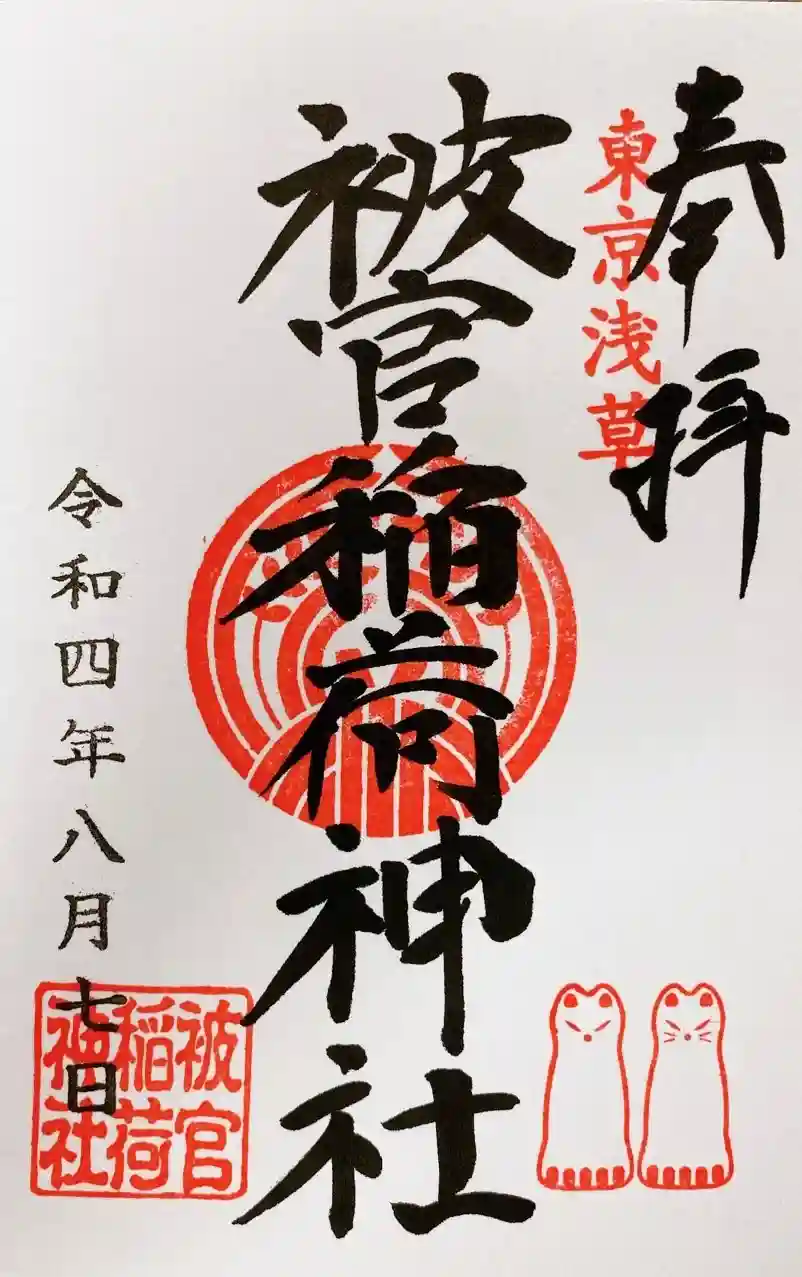 奉拝
東京浅草
被官稲荷神社
令和四年八月七日
被官
稲荷
神社